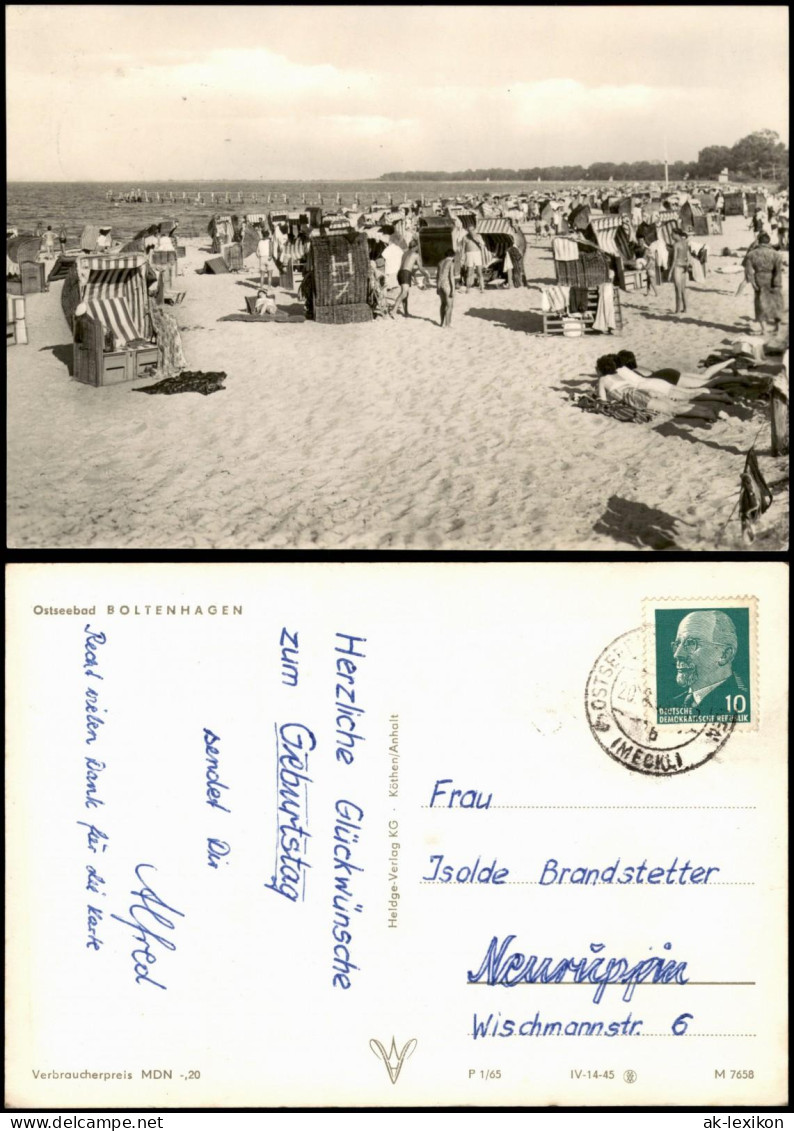 Ostseebad BOLTENHAGEN
Herzliche Glückwünsche
zum Geburtstag
sendet Dir
Alfred
Recht vielen Dank für die Karte
Heldge-Verlag KG · Köthen/Anhalt
(MECKL)
b
10
DEUTSCHE
DEMOKRATISCHE REPUBLIK
Frau
Isolde Brandstetter
Neuruppin
Wischmannstr. 6
Verbraucherpreis MDN -,20
P 1/65
IV-14-45
M 7658
ak-lexikon
www.ak-lexikon.de